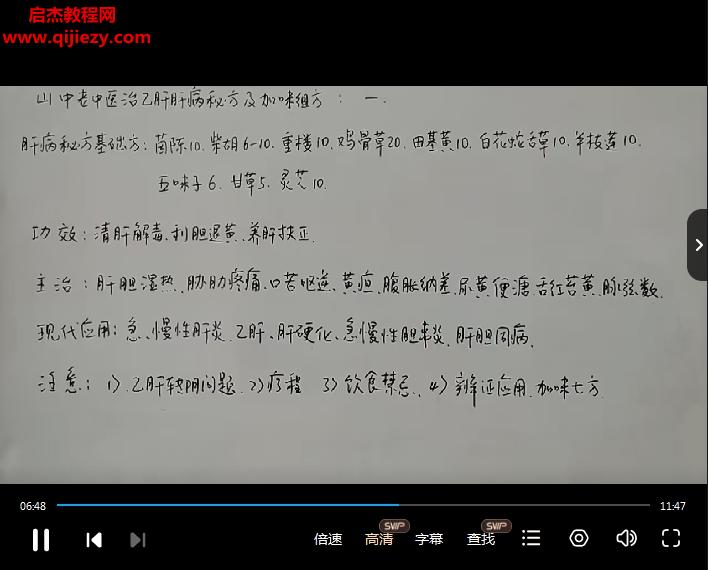 启杰教程网
www.qijiezy.com
山中老中医治乙肝肝病秘方及加味组方：一.
肝病秘方基础方：茵陈10.柴胡6-10.重楼10.鸡骨草20.田基黄10.白花蛇舌草10.半枝莲10.
五味子6.甘草5.灵芝10.
功效：清肝解毒.利胆退黄.养肝扶正.
主治：肝胆湿热、胁肋疼痛、口苦呕逆、黄疸、腹胀纳差、尿黄便溏、舌红苔黄、脉弦数.
现代应用：急、慢性肝炎、乙肝、肝硬化、急慢性胆囊炎、肝胆同病.
注意：1）.乙肝转阴问题.2）疗程 3）饮食禁忌、4）辨证应用.加味七方.
06:48
11:47
倍速
高清
SWP
字幕
查找
SWP